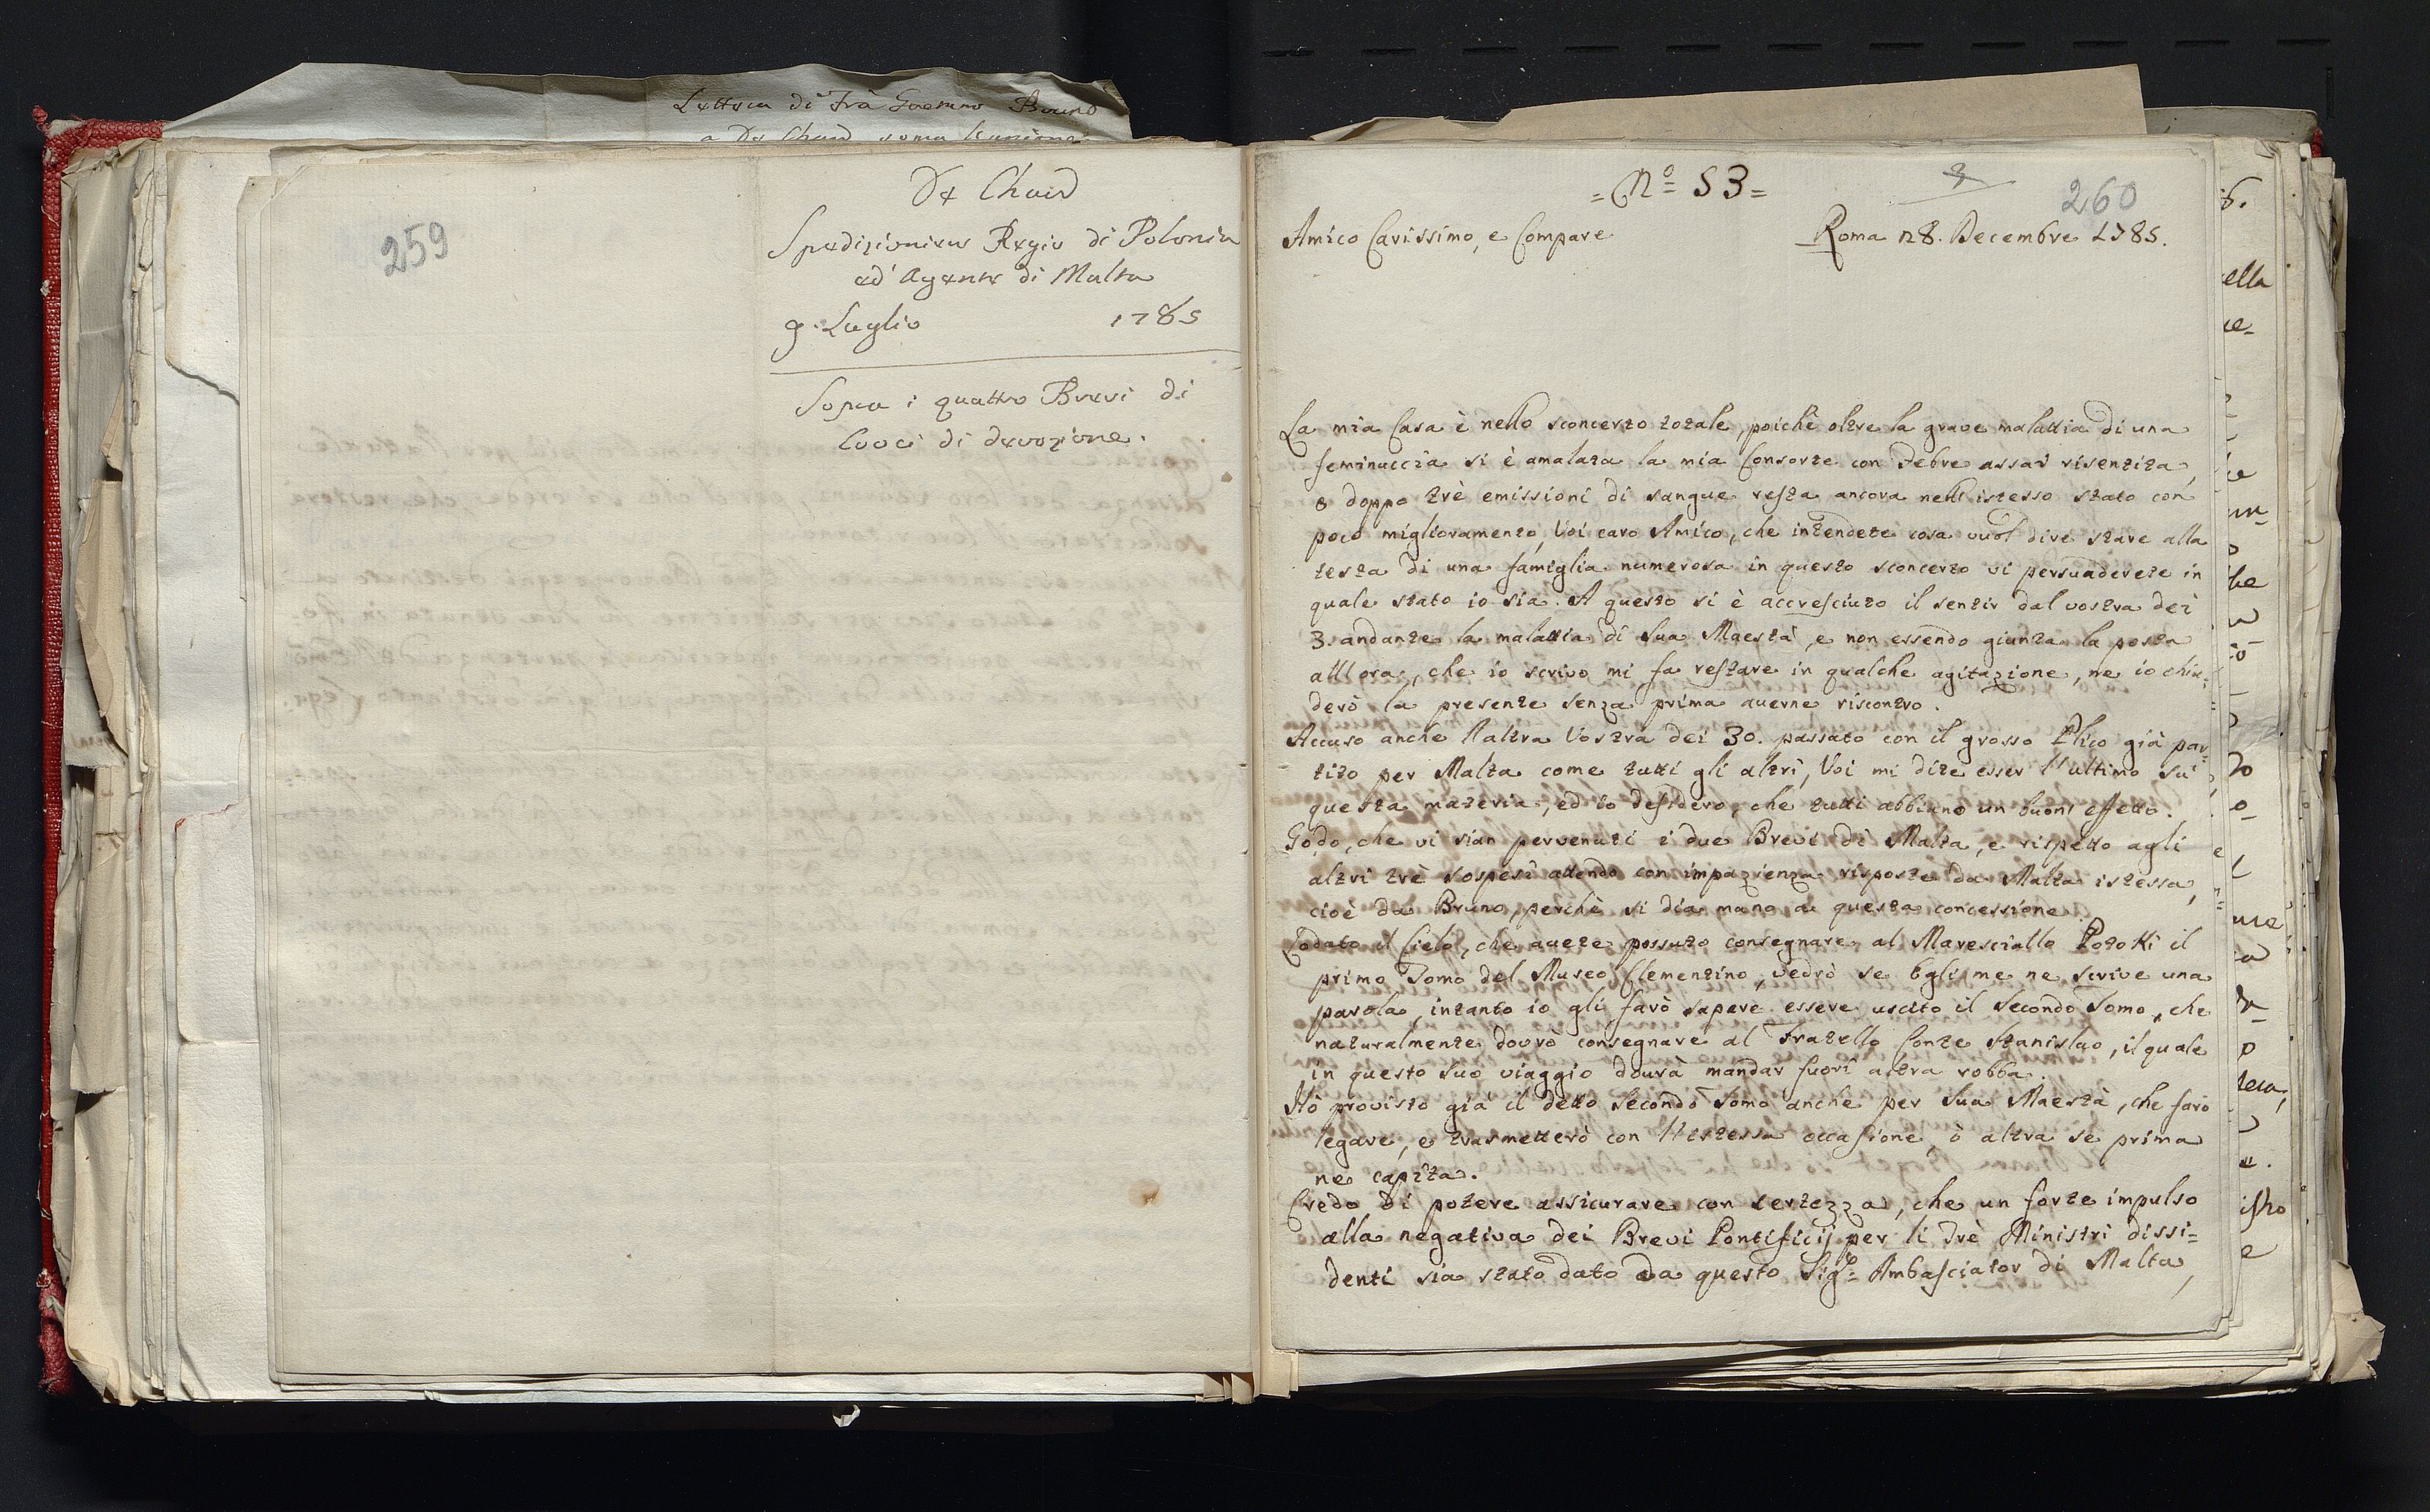 Lettera di Frà Gaetano Bruno
259
De Chard
Spedizioniere Regio di Polonia
ed' Agente di Malta
9. Luglio 1785
Sopra i quattro Brevi di
Croci di devozione.
= No 53 =
260
Amico Carissimo, e Compare
Roma 28. Decembre 1785.
La mia Casa è nello sconcerto totale, poichè oltre la grave malattia di una
feminuccia si è amalata la mia Consorte con Febre assai risentita,
e doppo trè emissioni di sangue resta ancora nell'istesso stato con
poco miglioramento, Voi caro Amico, che intendete cosa vuol dire stare alla
testa di una famiglia numerosa in questo sconcerto vi persuaderete in
quale stato io sia. A questo si è accresciuto il sentir dal vostra dei
3. andante la malattia di Sua Maestà, e non essendo giunta la posta
all'ora, che io scrivo mi fa restare in qualche agitazione, ne io chiu=
derò la presente senza prima averne riscontro.
Accuso anche l'altra Vostra dei 30. passato con il grosso Plico già par=
tito per Malta come tutti gli altri, Voi mi dite esser l'ultimo su'
questa materia, ed io desidero, che tutti abbiano un buon effetto.
Godo, che vi sian pervenuti i due Brevi di Malta, e rispetto agli
altri trè sospesi attendo con impazienza risposte da Malta istessa,
cioè da Bruno, perchè si dia mano a questa concessione.
Lodato il Cielo, che avete possuto consegnare al Maresciallo Potoki il
primo Tomo del Museo Clementino, vedrò se Egli me ne scrive una
parola, intanto io gli farò sapere essere uscito il Secondo Tomo, che
naturalmente dovrò consegnare al Fratello Conte Stanislao, il quale
in questo suo viaggio dovrà mandar fuori altra robba.
Hò provisto già il detto Secondo Tomo anche per Sua Maestà, che farò
legare, e trasmetterò con l'istessa occasione, ò altra se prima
ne capita.
Credo di potere assicurare con certezza, che un forte impulso
alla negativa dei Brevi Pontificij per li Trè Ministri dissi=
denti sia stato dato da questo Sigr. Ambasciator di Malta,